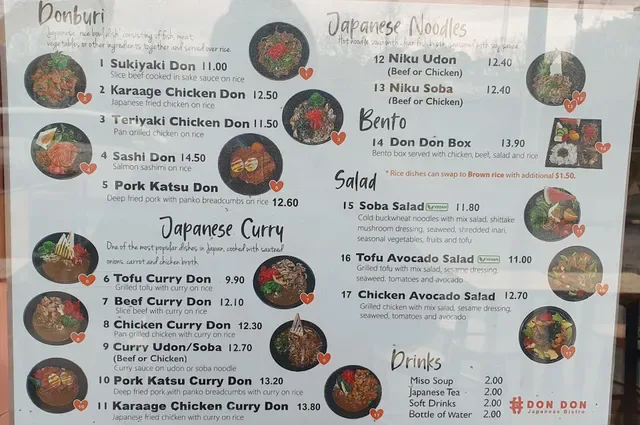 Donburi
Japanese rice bowl dish consisting of fish, meat,
vegetables or other ingredients together and served over rice.
1 Sukiyaki Don 11.00
Slice beef cooked in sake sauce on rice
2 Karaage Chicken Don 12.50
Japanese fried chicken on rice
3 Teriyaki Chicken Don 11.50
Pan grilled chicken on rice
4 Sashi Don 14.50
Salmon sashimi on rice
5 Pork Katsu Don
Deep fried pork with panko breadcumbs on rice 12.60
Japanese Curry
One of the most popular dishes in Japan, cooked with sauteed
onions, carrot and chicken broth.
6 Tofu Curry Don 9.90
Grilled tofu with curry on rice
7 Beef Curry Don 12.10
Slice beef with curry on rice
8 Chicken Curry Don 12.30
Pan grilled chicken with curry on rice
9 Curry Udon/Soba 12.70
(Beef or Chicken)
Curry sauce on udon or soba noodle
10 Pork Katsu Curry Don 13.20
Deep fried pork with panko breadcumbs with curry on rice
11 Karaage Chicken Curry Don 13.80
Japanese fried chicken with curry on rice
Japanese Noodles
Hot noodle soup with
12 Niku Udon 12.40
(Beef or Chicken)
13 Niku Soba 12.40
(Beef or Chicken)
Bento
14 Don Don Box 13.90
Bento box served with chicken, beef, salad and rice
* Rice dishes can swap to Brown rice with additional $1.50.
Salad
15 Soba Salad 11.80
Cold buckwheat noodles with mix salad, shittake
mushroom dressing, seaweed, shredded inari,
seasonal vegetables, fruits and tofu
16 Tofu Avocado Salad 11.00
Grilled tofu with mix salad, sesame dressing,
seaweed, tomatoes and avocado
17 Chicken Avocado Salad 12.70
Grilled chicken with mix salad, sesame dressing,
seaweed, tomatoes and avocado
Drinks
Miso Soup 2.00
Japanese Tea 2.00
Soft Drinks 2.00
Bottle of Water 2.00
# DON DON
Japanese Bistro